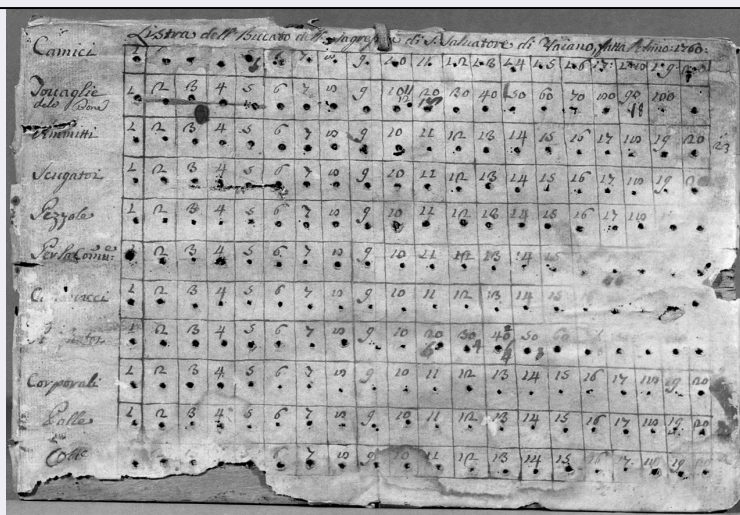 Listra dell' Bucato della Sagrestia di S. Salvatore di Vaiano, fatta l'Anno: 1760:
Camici 1 6 7 8 9 10 11 12 13 14 15 16 17 18 19
Tovaglie 1 2 3 4 5 6 7 8 9 10 20 30 40 50 60 70 80 90 100
delle
Ammitti 1 2 3 4 5 6 7 8 9 10 11 12 13 14 15 16 17 18 19 20 23
Sciugatoi 1 2 3 4 5 6 7 8 9 10 11 12 13 14 15 16 17 18 19 20
Pezzole 1 2 3 4 5 6 7 8 9 10 11 12 13 14 15 16 17 18
Per la Comu:ne 1 2 3 4 5 6 7 8 9 10 11 12 13 14 15
1 2 3 4 5 6 7 8 9 10 11 12 13 14 15
1 2 3 4 5 6 7 8 9 10 20 30 40 50 60
Corporali 1 2 3 4 5 6 7 8 9 10 11 12 13 14 15 16 17 18 19 20
Palle 1 2 3 4 5 6 7 8 9 10 11 12 13 14 15 16 17 18 19 20
6 7 8 9 10 11 12 13 14 15 16 17 18 19 20